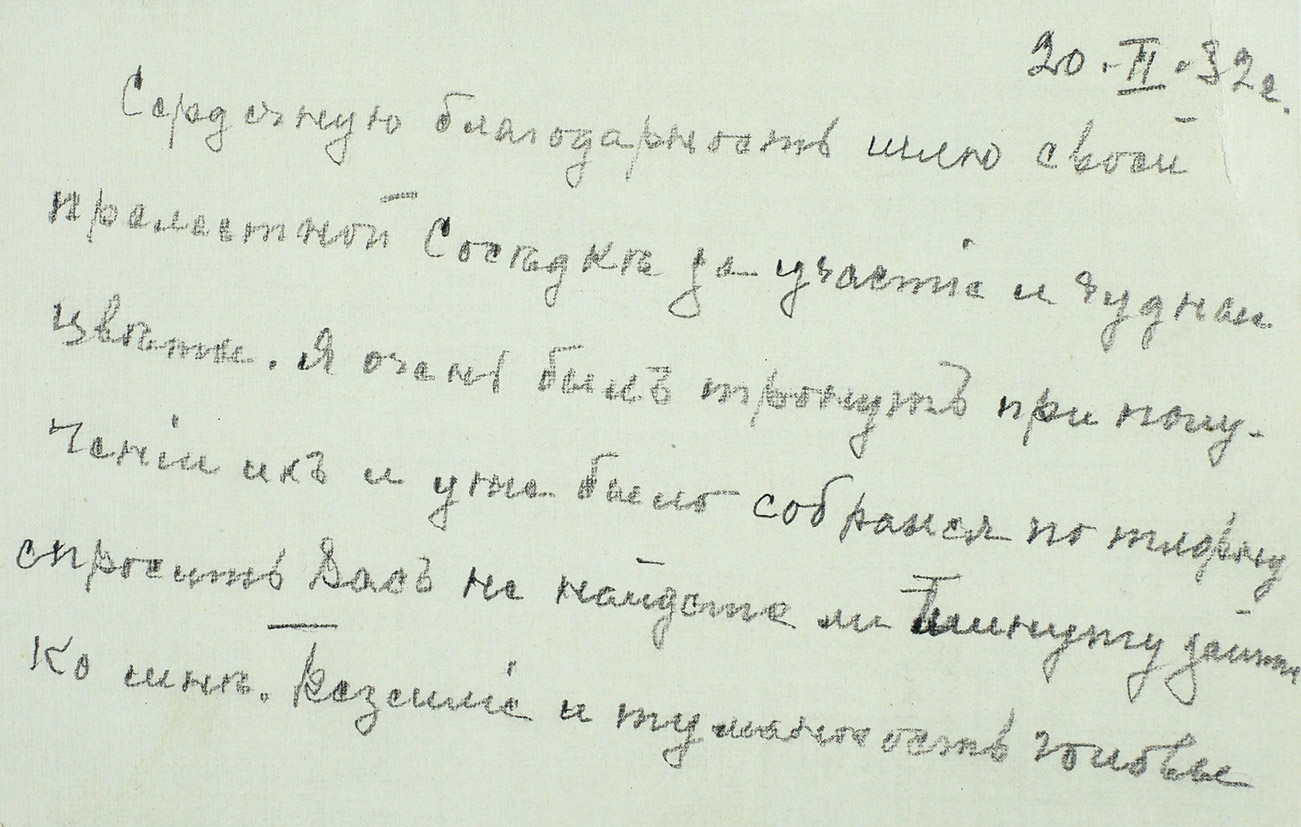 20.II.32г.
Сердечную благодарность шлю своей
прелестной Сосѣдкѣ за участіе и чудные
цвѣты. Я очень былъ тронутъ при полу-
ченіи ихъ и уже было собрался по телефону
спросить Васъ не найдете ли минуту зайти
ко мнѣ. Безсиліе и туманность головы